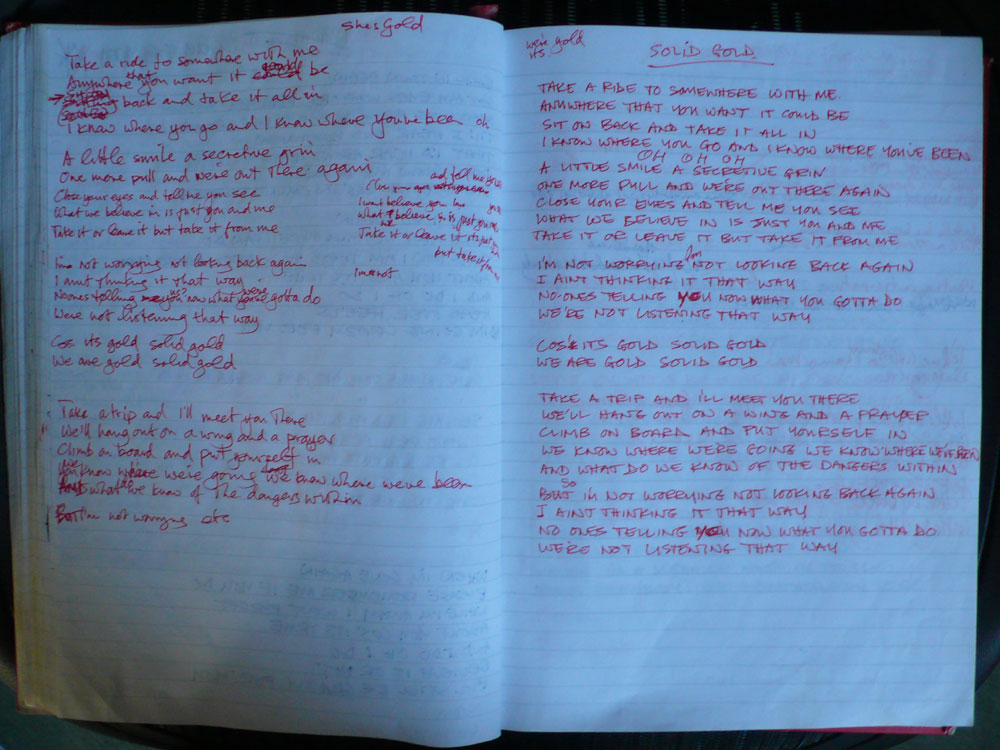 She's Gold
Take a ride to somewhere with me
Anywhere that you want it be
back and take it all in
I know where you go and I know where you've been oh
A little smile a secretive grin
One more pull and we're out there again
Close your eyes and tell me you see
What we believe in is just you and me
Take it or leave it but take it from me
and tell me you
Close your eyes
I want believe you
what believe in is just you
Take it or leave it
but take it from me
I'm not worrying not looking back again
I'm not
I aint thinking it that way
Noones telling you now what gotta do
We're not listening that way
Cos its gold solid gold
We are gold solid gold
Take a trip and I'll meet you there
We'll hang out on a wing and a prayer
Climb on board and put yourself in
know where we're going we know where we've been
what we know of the dangers within
But I'm not worrying etc
we're gold
its
SOLID GOLD
TAKE A RIDE TO SOMEWHERE WITH ME.
ANYWHERE THAT YOU WANT IT COULD BE
SIT ON BACK AND TAKE IT ALL IN
I KNOW WHERE YOU GO AND I KNOW WHERE YOU'VE BEEN
OH OH OH
A LITTLE SMILE A SECRETIVE GRIN
ONE MORE PULL AND WE'RE OUT THERE AGAIN
CLOSE YOUR EYES AND TELL ME YOU SEE
WHAT WE BELIEVE IN IS JUST YOU AND ME
TAKE IT OR LEAVE IT BUT TAKE IT FROM ME
I'M NOT WORRYING I'm NOT LOOKING BACK AGAIN
I AINT THINKING IT THAT WAY
NO-ONES TELLING YOU NOW WHAT YOU GOTTA DO
WE'RE NOT LISTENING THAT WAY
COS ITS GOLD SOLID GOLD
WE ARE GOLD SOLID GOLD
TAKE A TRIP AND I'LL MEET YOU THERE
WE'LL HANG OUT ON A WING AND A PRAYER
CLIMB ON BOARD AND PUT YOURSELF IN
WE KNOW WHERE WE'RE GOING WE KNOW WHERE WE'VE BEEN
AND WHAT DO WE KNOW OF THE DANGERS WITHIN
So
BUT I'M NOT WORRYING NOT LOOKING BACK AGAIN
I AINT THINKING IT THAT WAY
NO ONES TELLING YOU NOW WHAT YOU GOTTA DO
WE'RE NOT LISTENING THAT WAY